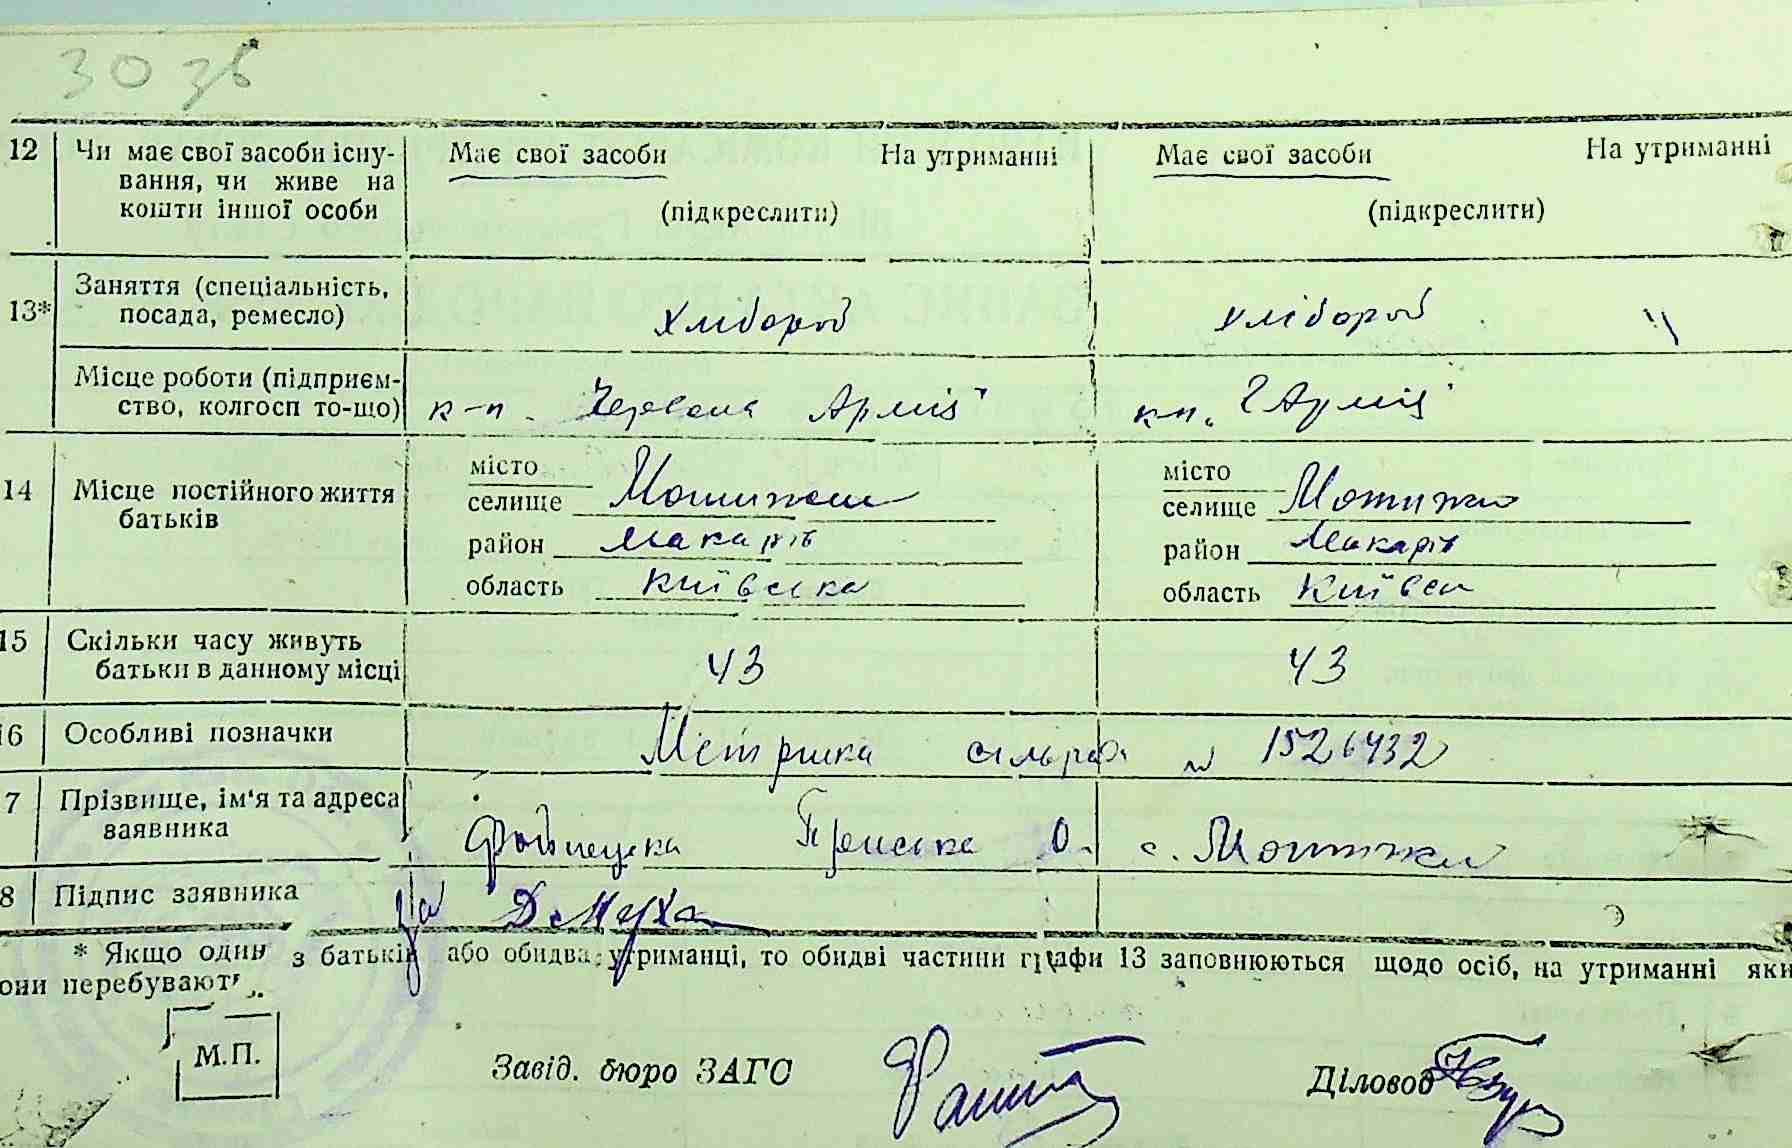 30 зб
12 Чи має свої засоби існу- Має свої засоби На утриманні Має свої засоби На утриманні
вання, чи живе на
кошти іншої особи (підкреслити) (підкреслити)
13* Заняття (спеціальність,
посада, ремесло) хлібороб хлібороб
Місце роботи (підприєм-
ство, колгосп то-що) к-п. Червона Армія к-п. Ч Армія
14 Місце постійного життя місто місто
батьків селище Мотижин селище Мотижин
район Макарів район Макарів
область Київська область Київськ
15 Скільки часу живуть
батьки в данному місці 43 43
16 Особливі позначки Метрика сільради № 1526432
7 Прізвище, ім'я та адреса
заявника О. с. Мотижин
8 Підпис заявника за Д Муха
* Якщо один з батьків або обидва утриманці, то обидві частини графи 13 заповнюються щодо осіб, на утриманні яки
они перебувают
М.П.
Завід. бюро ЗАГС Діловод